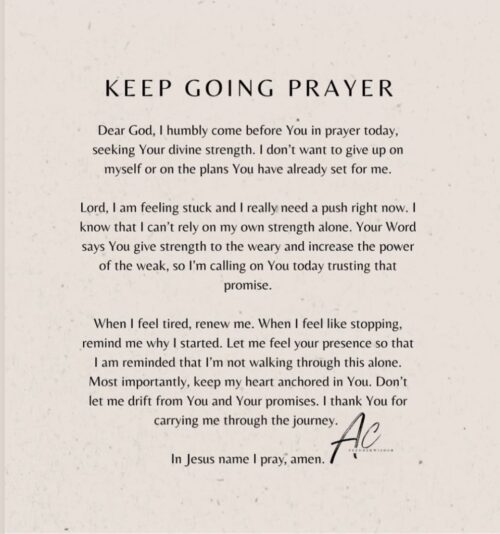 KEEP GOING PRAYER
Dear God, I humbly come before You in prayer today,
seeking Your divine strength. I don't want to give up on
myself or on the plans You have already set for me.
Lord, I am feeling stuck and I really need a push right now. I
know that I can't rely on my own strength alone. Your Word
says You give strength to the weary and increase the power
of the weak, so I'm calling on You today trusting that
promise.
When I feel tired, renew me. When I feel like stopping,
remind me why I started. Let me feel your presence so that
I am reminded that I'm not walking through this alone.
Most importantly, keep my heart anchored in You. Don't
let me drift from You and Your promises. I thank You for
carrying me through the journey.
AC
In Jesus name I pray, amen.